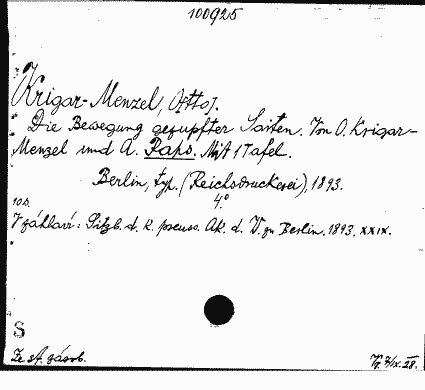 100925
Krigar-Menzel, O[tto].
Die Bewegung gezupfter Saiten. Von O. Krigar-
Menzel und A. Raps. Mit 1 Tafel.
Berlin, typ. (Reichsdruckerei), 1893.
4°
10 s.
V záhlaví: Sitzb. d. k. preuss. Ak. d. W. zu Berlin. 1893, XXIX.
S
Ze st. zásob.
IX. 28.